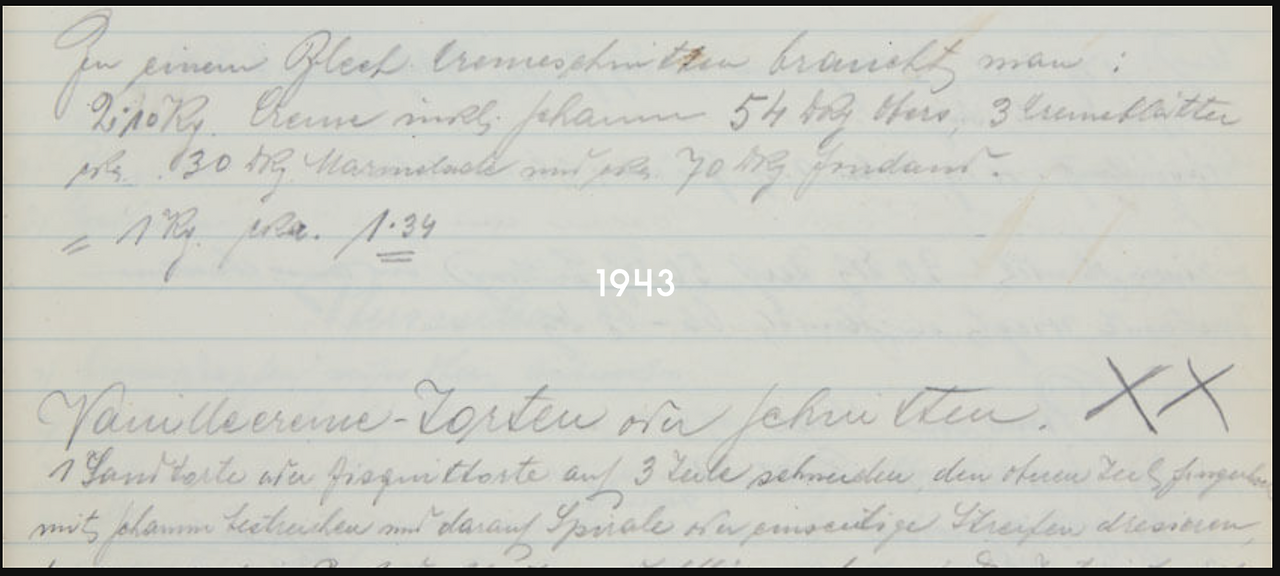 Zu einem Blech Cremeschnitten braucht man :
2·10 Kg. Creme inkl. Schaum 54 Dkg Obers, 3 Cremeblätter
zka. 30 Dkg. Marmelade und zka. 70 Dkg Fondant.
= 1 Kg. zka. 1·34
1943
Vanillecreme-Torten oder Schnitten. XX
1 Sandtorte oder Bisquittorte auf 3 Teile schneiden, den oberen Teil
mit Schaum bestreichen und darauf Spirale oder einseitige Streifen dresieren,